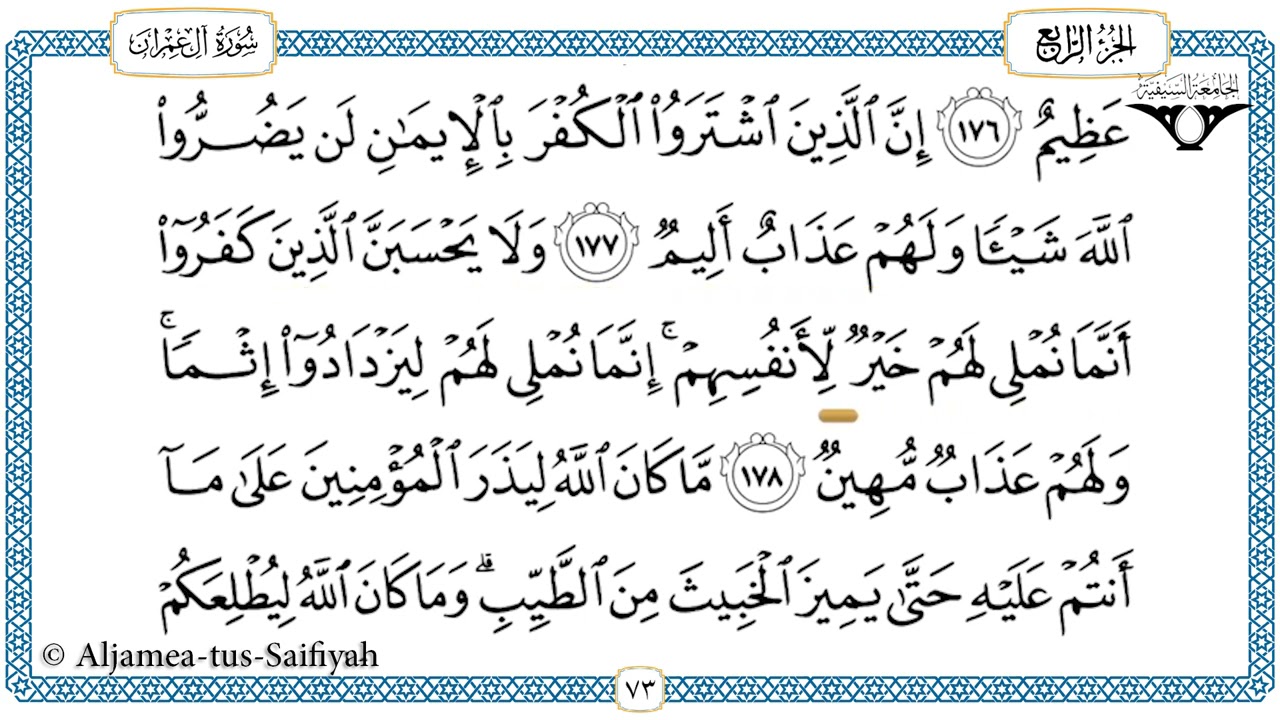 سُورَةُ آلِ عِمْرَانَ
الجُزْءُ الرَّابِعُ
الجَامِعَةُ السَّيْفِيَّة
عَظِيمٌ ١٧٦ إِنَّ ٱلَّذِينَ ٱشْتَرَوُا۟ ٱلْكُفْرَ بِٱلْإِيمَـٰنِ لَن يَضُرُّوا۟
ٱللَّهَ شَيْـًٔا وَلَهُمْ عَذَابٌ أَلِيمٌ ١٧٧ وَلَا يَحْسَبَنَّ ٱلَّذِينَ كَفَرُوٓا۟
أَنَّمَا نُمْلِى لَهُمْ خَيْرٌ لِّأَنفُسِهِمْ ۚ إِنَّمَا نُمْلِى لَهُمْ لِيَزْدَادُوٓا۟ إِثْمًا ۚ
وَلَهُمْ عَذَابٌ مُّهِينٌ ١٧٨ مَّا كَانَ ٱللَّهُ لِيَذَرَ ٱلْمُؤْمِنِينَ عَلَىٰ مَآ
أَنتُمْ عَلَيْهِ حَتَّىٰ يَمِيزَ ٱلْخَبِيثَ مِنَ ٱلطَّيِّبِ ۗ وَمَا كَانَ ٱللَّهُ لِيُطْلِعَكُمْ
© Aljamea-tus-Saifiyah
٧٣